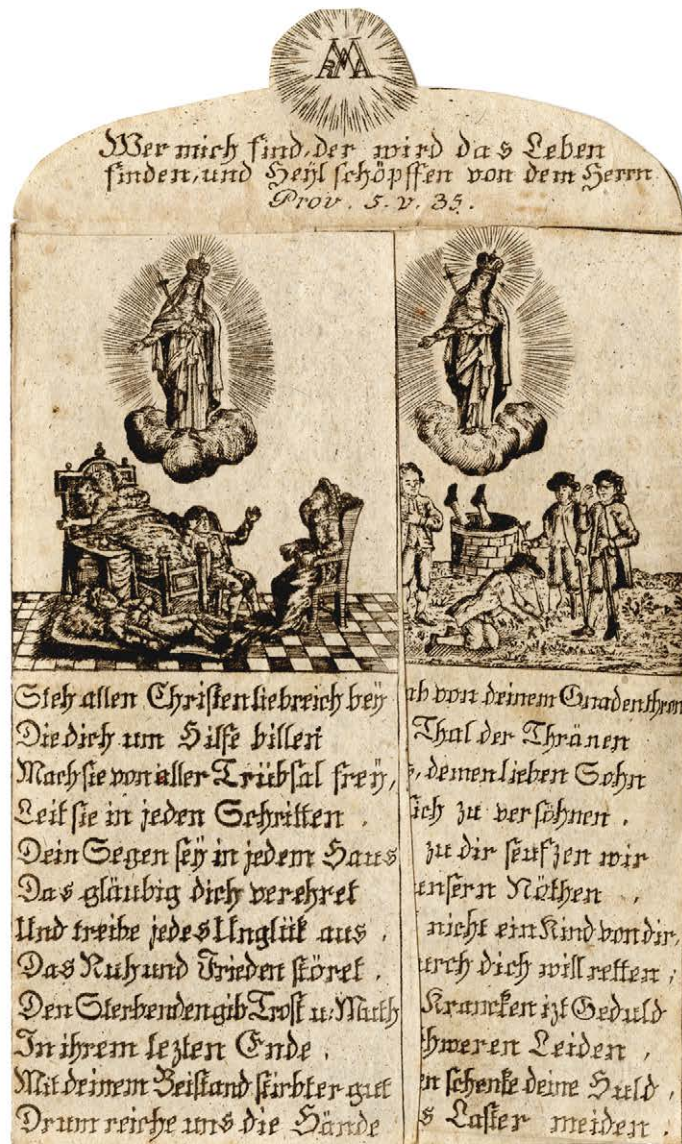 MARIA
Wer mich find, der wird das Leben
finden, und Heÿl schöpffen von dem Herrn
Prov. 5. v. 35.
Steh allen Christen liebreich beÿ
Die dich um Hilfe bitten
Mach sie von aller Trübsal freÿ,
Leit sie in jeden Schritten.
Dein Segen seÿ in jedem Haus
Das gläubig dich verehret
Und treibe jedes Unglük aus,
Das Ruh und Frieden störet.
Den Sterbenden gib Trost u: Muth
In ihrem lezten Ende,
Mit deinem Beistand stirbt er gut
Drum reiche uns die Hände
ab von deinem Gnadenthron
Thal der Thränen
, deinen lieben Sohn
sich zu versöhnen.
zu dir seufzen wir
unsern Nöthen,
nicht ein Kind von dir,
urch dich will retten,
Krancken izt Geduld
chweren Leiden,
en schenke deine Huld,
s Laster meiden.